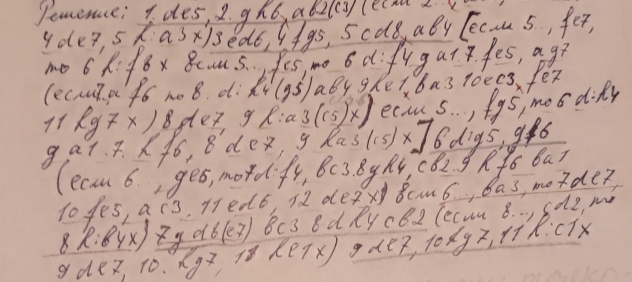 Решение: 1. de5, 2. gh6, ab2(c3) (если 2...
4 de7, 5 h:a3x) 3 ed6, 4 fg5, 5 cd8, ab4 [если 5.., fe7,
то 6 h:f8 x если 5.., fe5, то 6 d:f4 ga1. 7. fe5, ag7
(если 7. af6 то 8. d:h4(g5) ab4 9 he1, ba3 10 ec3, fe7
11 hg7 x) 8 de7, 9 h:a3(c5)x] если 5..., fg5, то 6 d:h4
ga1. 7. hf6, 8 de7, 9 ha3(c5)x] 6 d:g5, gf6
(если 6.., ge5, то 7 d:f4, bc3. 8 gh4, cb2.. 9 hf6 ba1
10 fe5, ac3. 11 ed6, 12 de7x) если 6.., ba3, то 7 de7,
8 h:b4x) 7 gd8(e7) bc3 8 dh4 cb2 (если 8..., cd2, то
9 de7, 10. hg7, 11 he1x) 9 de7, 10 hg7, 11 h:c1x